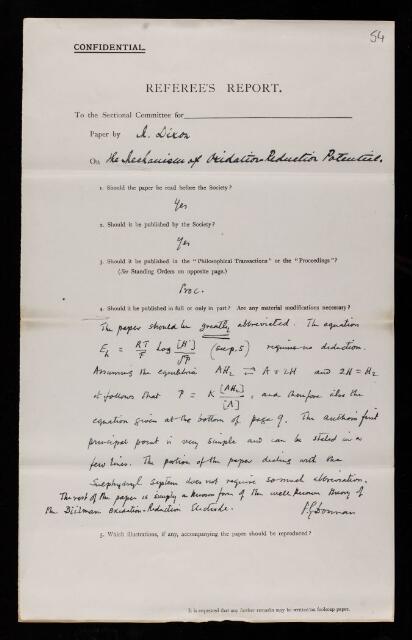 54
CONFIDENTIAL.
REFEREE'S REPORT.
To the Sectional Committee for
Paper by M. Dixon
On The Mechanism of Oxidation-Reduction Potential.
1. Should the paper be read before the Society?
Yes
2. Should it be published by the Society?
Yes
3. Should it be published in the "Philosophical Transactions" or the "Proceedings"?
(See Standing Orders on opposite page.)
Proc.
4. Should it be published in full or only in part? Are any material modifications necessary?
The paper should be greatly abbreviated. The equation
E_h = RT/F Log [H˙]/√P (see p. 5) requires no deduction.
Assuming the equilibria AH₂ ⇌ A + 2H and 2H = H₂
it follows that P = K [AH₂]/[A], and therefore also the
equation given at the bottom of page 9. The author's first
principal point is very simple and can be stated in a
few lines. The portion of the paper dealing with the
Sulphydryl system does not require so much abbreviation.
The rest of the paper is simply a known form of the well known theory of
the Biilman Oxidation-Reduction Electrode. F.G. Donnan
5. Which illustrations, if any, accompanying the paper should be reproduced?
It is requested that any further remarks may be written on foolscap paper.